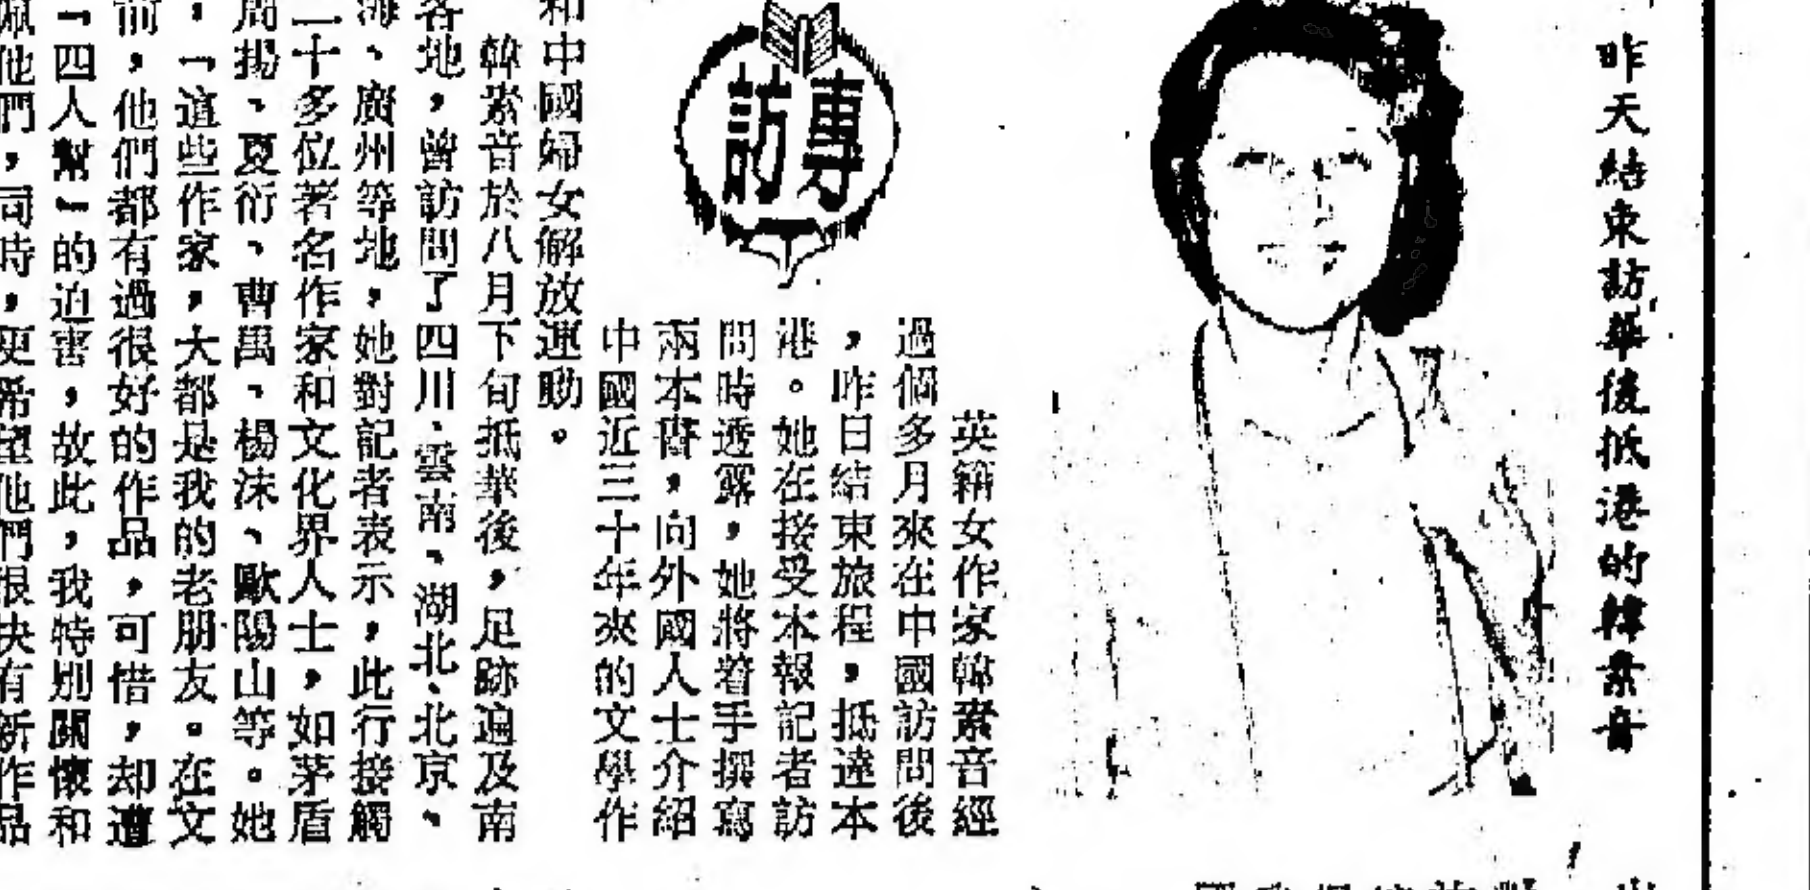 昨天結束訪華後抵港的韓素音
專訪
英籍女作家韓素音經
過個多月來在中國訪問後
，昨日結束旅程，抵達本
港。她在接受本報記者訪
問時透露，她將着手撰寫
兩本書，向外國人士介紹
中國近三十年來的文學作
和中國婦女解放運動。
韓素音於八月下旬抵華後，足跡遍及南
各地，曾訪問了四川、雲南、湖北、北京、
海、廣州等地，她對記者表示，此行接觸
二十多位著名作家和文化界人士，如茅盾
周揚、夏衍、曹禺、楊沫、歐陽山等。她
，「這些作家，大都是我的老朋友。在文
前，他們都有過很好的作品，可惜，却遭
「四人幫」的迫害，故此，我特別關懷和
佩他們，同時，更希望他們很快有新作品